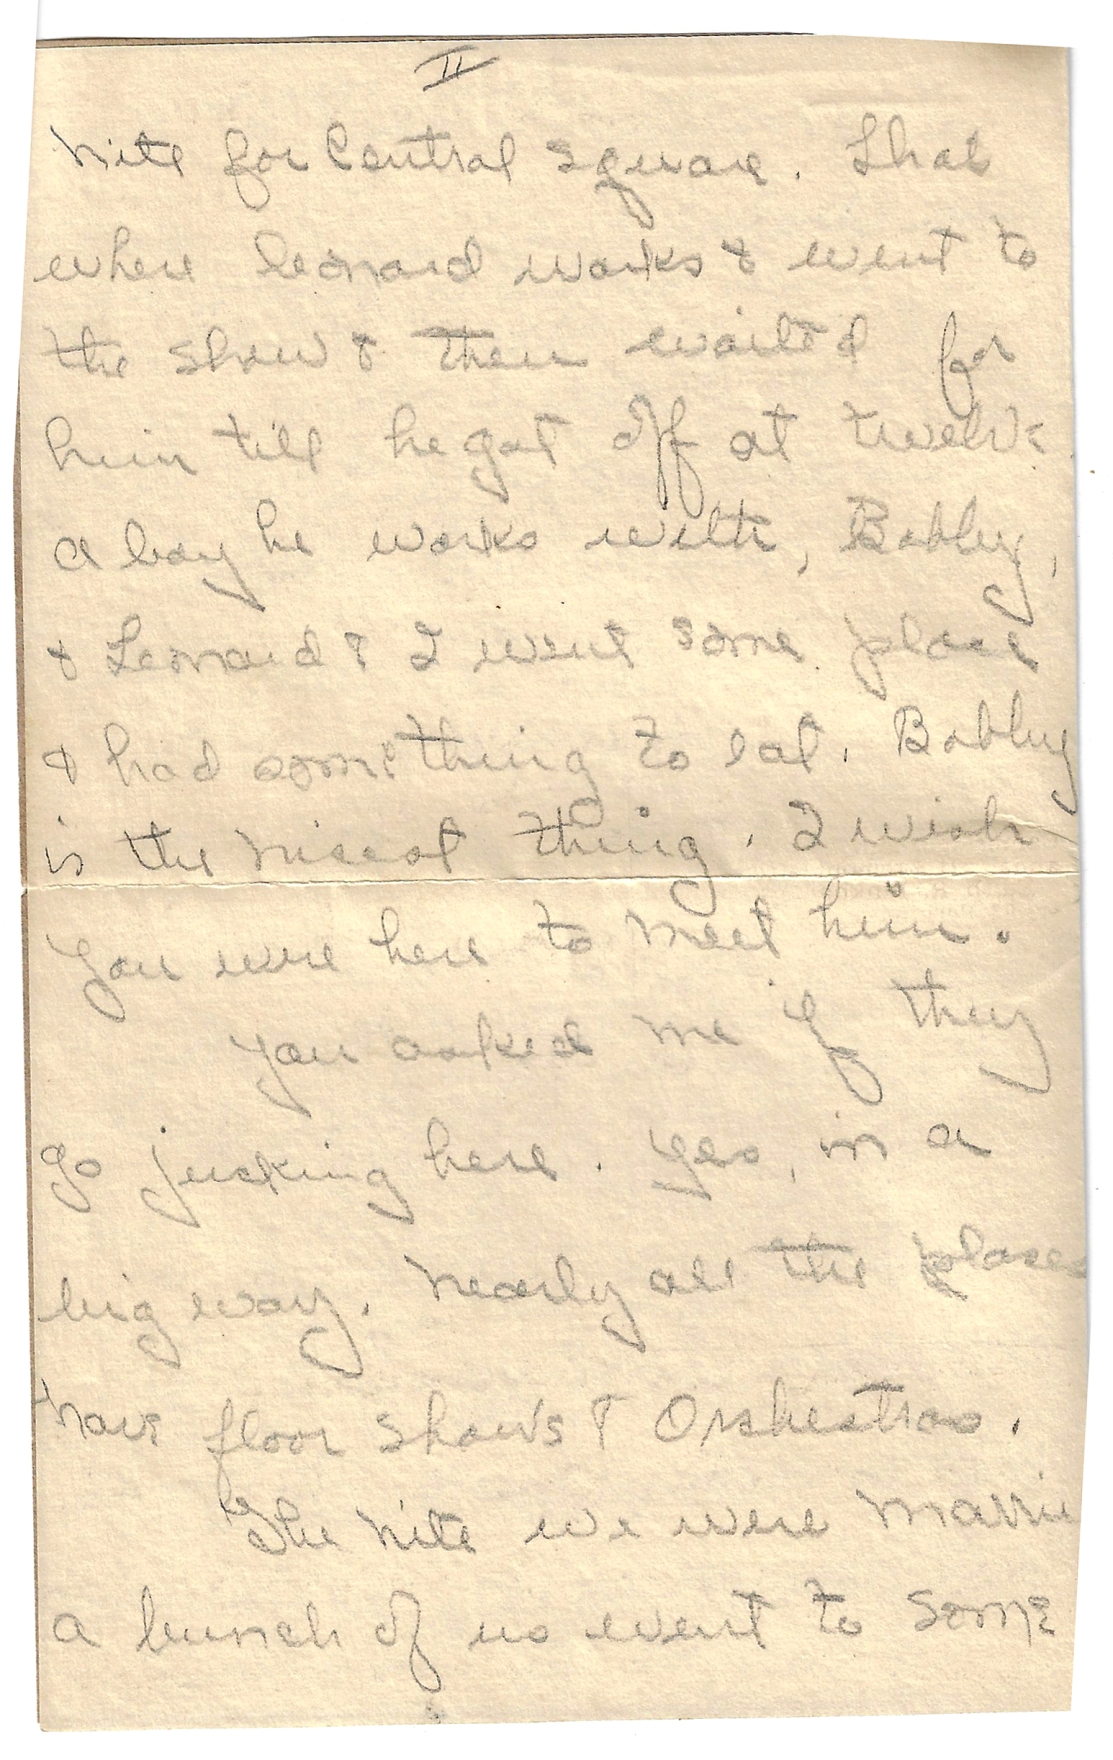 II
nite for Central Square. That
where Leonard works & went to
the show & then waited for
him till he got off at twelve.
A boy he works with, Bobby,
& Leonard & I went some place
& had something to eat. Bobby
is the nicest thing. I wish
you were here to meet him.
you asked me if they
go jucking here. yes, in a
big way. Nearly all the places
have floor shows & Orchestras.
The nite we were marrie
a bunch of us went to some